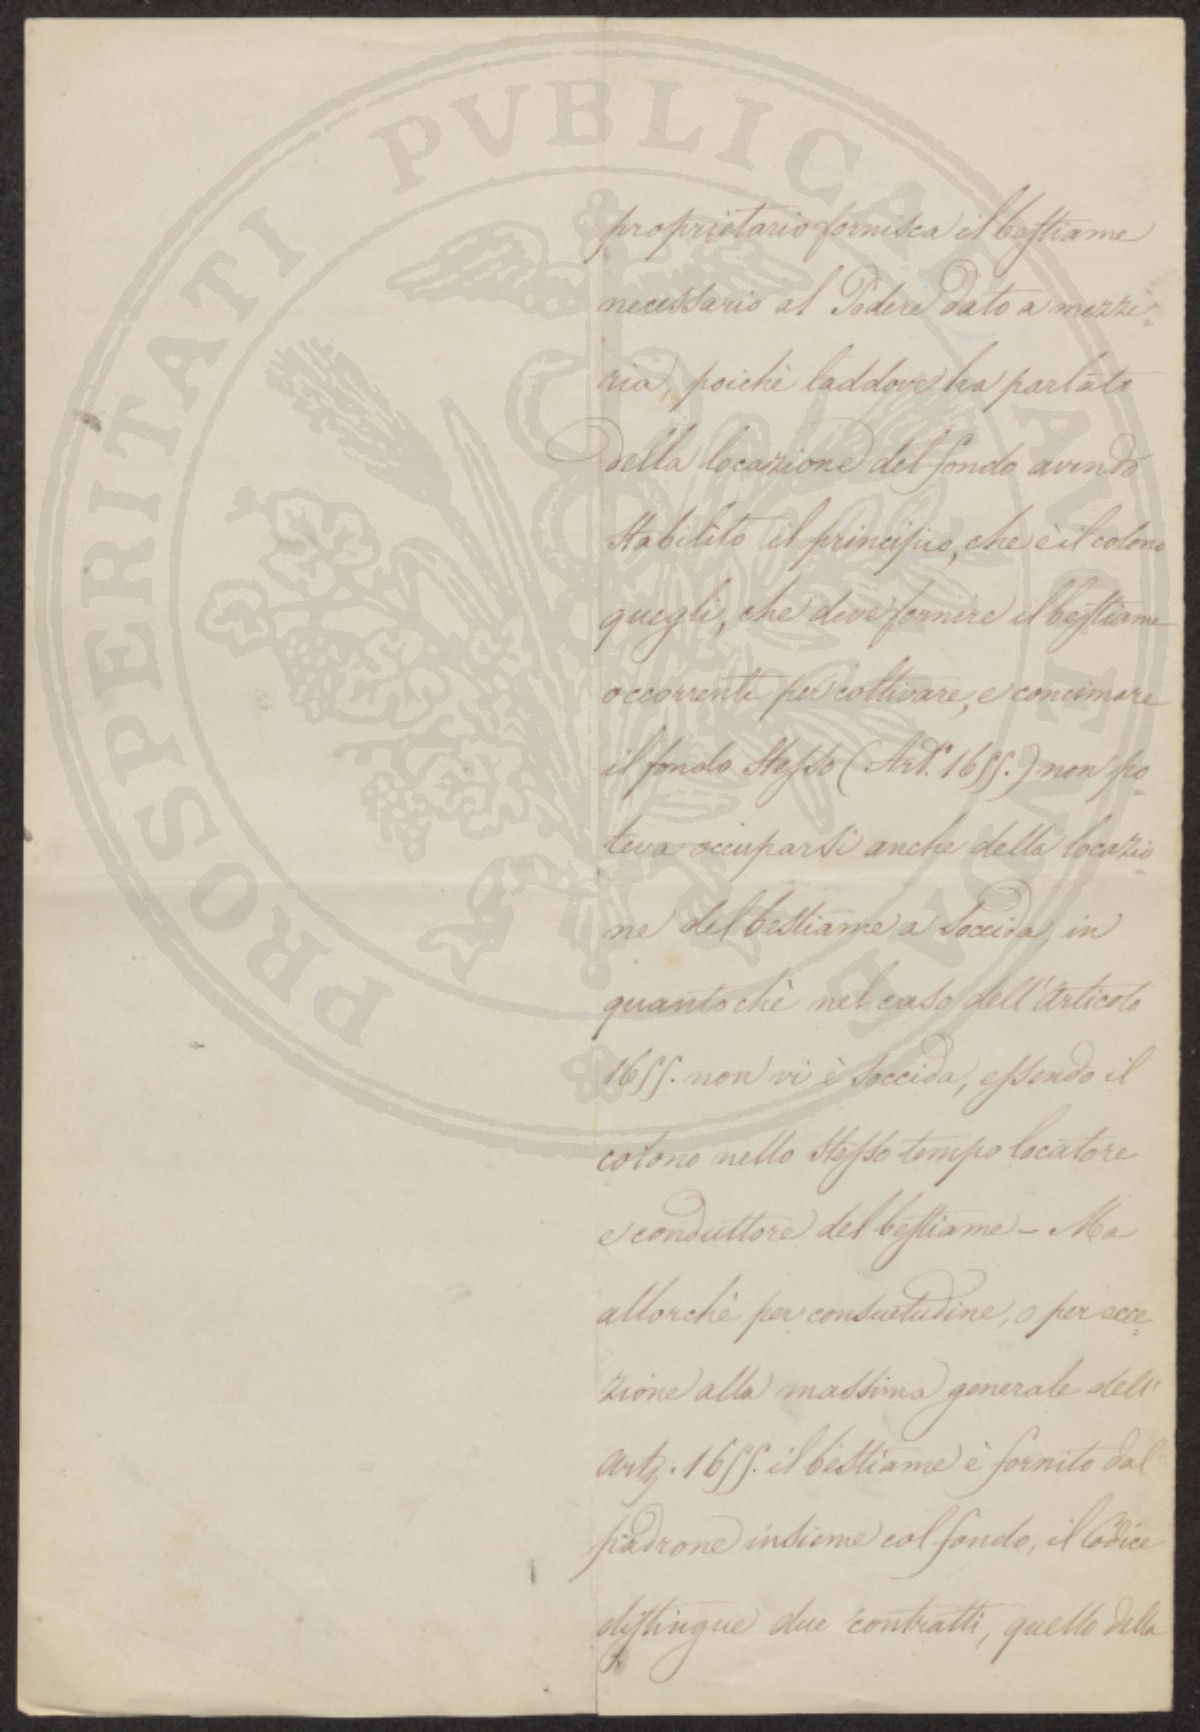 PROSPERITATI PVBLICAE AVGENDAE
proprietario fornisca il bestiame
necessario al Podere dato a mezze-
ria, poichè laddove ha parlato
della locazione del fondo avendo
stabilito il principio, che è il colono
quegli, che deve fornire il bestiame
occorrente per coltivare, e concimare
il fondo stesso (Art.º 1655.) non po-
teva occuparsi anche della locazio-
ne del bestiame a Soccida, in
quantochè nel caso dell'Articolo
1655. non vi è soccida, essendo il
colono nello stesso tempo locatore
e conduttore del bestiame – Ma
allorchè per consuetudine, o per ecce-
zione alla massima generale dell'
art. 1655. il bestiame è fornito dal
padrone insieme col fondo, il Codice
distingue due contratti, quello della